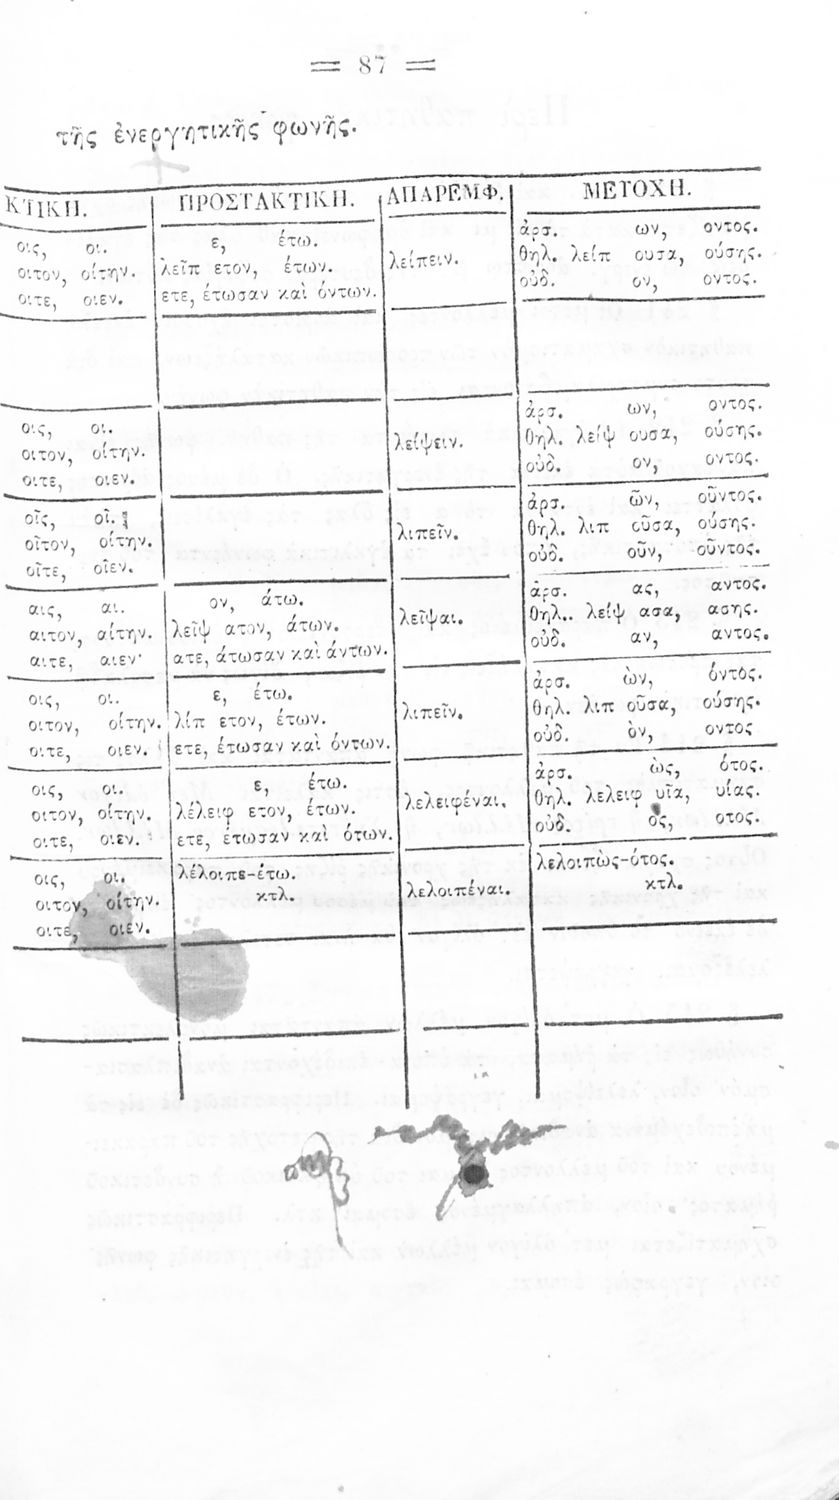 = 87 =
τῆς ἐνεργητικῆς φωνῆς.
ΚΤΙΚΗ. ΠΡΟΣΤΑΚΤΙΚΗ. ΑΠΑΡΕΜΦ. ΜΕΤΟΧΗ.
οις, οι. ε, έτω. ἀρσ. ων, οντος.
οιτον, οίτην. λεῖπ ετον, έτων. λείπειν. θηλ. λείπ ουσα, ούσης.
οιτε, οιεν. ετε, έτωσαν καὶ όντων. οὐδ. ον, οντος.
οις, οι. ἀρσ. ων, οντος.
οιτον, οίτην. λείψειν. θηλ. λείψ ουσα, ούσης.
οιτε, οιεν. οὐδ. ον, οντος.
οῖς, οῖ. ἀρσ. ῶν, οῦντος.
οῖτον, οίτην. λιπεῖν. θηλ. λιπ οῦσα, ούσης.
οῖτε, οῖεν. οὐδ. οῦν, οῦντος.
αις, αι. ον, άτω. ἀρσ. ας, αντος.
αιτον, αίτην. λεῖψ ατον, άτων. λεῖψαι. θηλ. λείψ ασα, ασης.
αιτε, αιεν. ατε, άτωσαν καὶ άντων. οὐδ. αν, αντος.
οις, οι. ε, έτω. ἀρσ. ὼν, όντος.
οιτον, οίτην. λίπ ετον, έτων. λιπεῖν. θηλ. λιπ οῦσα, ούσης.
οιτε, οιεν. ετε, έτωσαν καὶ όντων. οὐδ. ὸν, οντος
οις, οι. ε, έτω. ἀρσ. ὼς, ότος.
οιτον, οίτην. λέλειφ ετον, έτων. λελειφέναι. θηλ. λελειφ υῖα, υίας.
οιτε, οιεν. ετε, έτωσαν καὶ ότων. οὐδ. ὸς, οτος.
οις, οι. λέλοιπε-έτω. λελοιπὼς-ότος.
οιτον, οίτην. κτλ. λελοιπέναι. κτλ.
οιτε, οιεν.